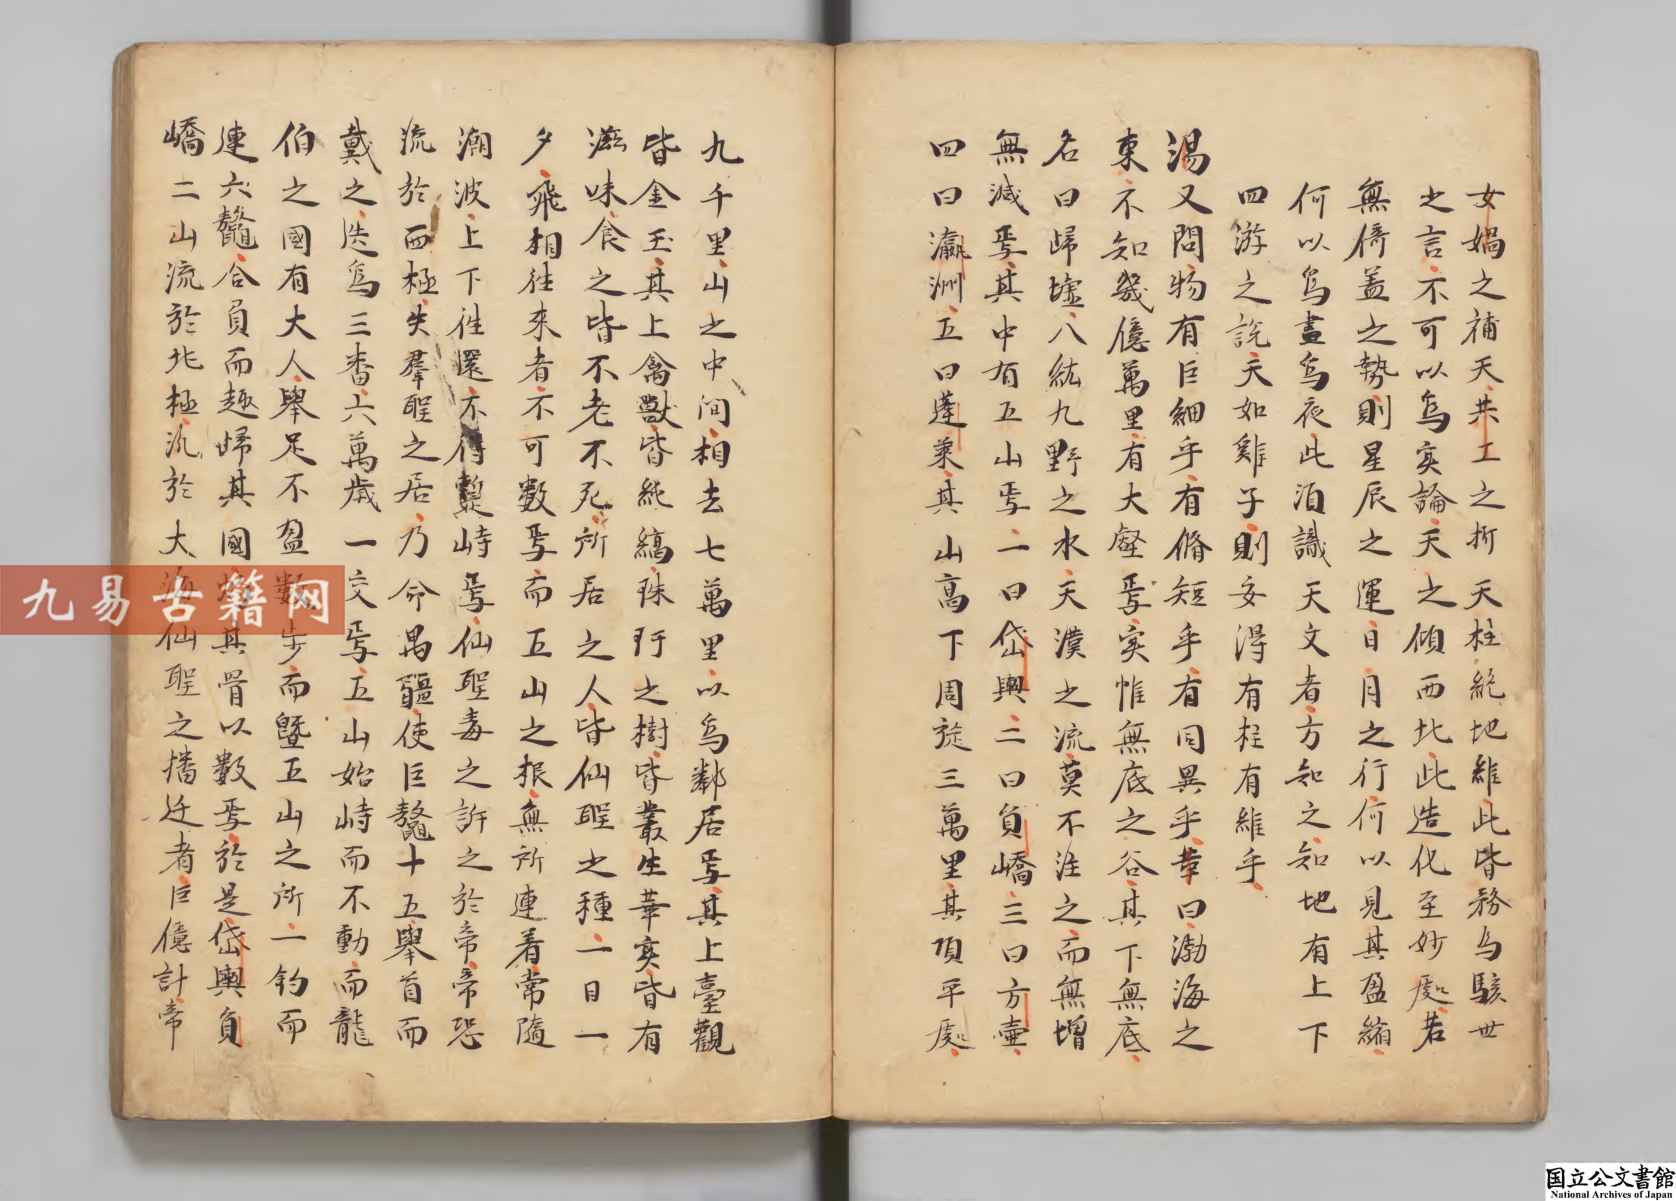 女媧之補天共工之折天柱絶地維此皆務為駭世
之言不可以為実論天之傾西北此造化至妙處若
無倚盖之勢則星辰之運日月之行何以見其盈縮
何以為晝為夜此酒識天文者方知之知地有上下
四游之説天如雞子則安得有柱有維乎
湯又問物有巨細乎有脩短乎有同異乎革曰渤海之
東不知幾億萬里有大壑焉実惟無底之谷其下無底
名曰歸墟八紘九野之水天漢之流莫不注之而無增
無減焉其中有五山焉一曰岱輿二曰負嶠三曰方壷
四曰瀛洲五曰蓬萊其山高下周旋三萬里其頂平處
九千里山之中間相去七萬里以為鄰居焉其上臺觀
皆金玉其上禽獸皆純縞珠玕之樹皆叢生華実皆有
滋味食之皆不老不死所居之人皆仙聖之種一日一
夕飛相往来者不可數焉而五山之根無所連着常隨
潮波上下往還不得蹔峙焉仙聖毒之訴之於帝帝恐
流於西極失羣聖之居乃命禺疆使巨鼇十五舉首而
戴之迭為三番六萬歳一交焉五山始峙而不動而龍
伯之國有大人舉足不盈數步而曁五山之所一釣而
連六鼇合負而趣歸其國灼其骨以數焉於是岱輿負
嶠二山流於北極沉於大海仙聖之播迁者巨億計帝
九易古籍网
国立公文書館
National Archives of Japan